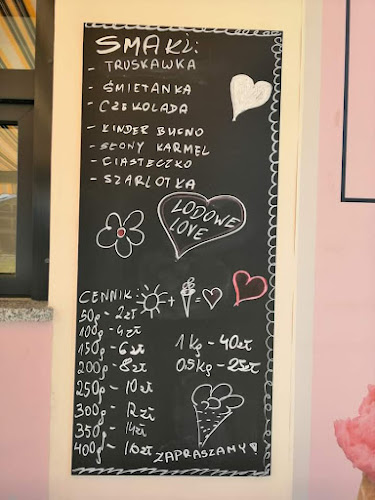 SMAKI:
- TRUSKAWKA
- ŚMIETANKA
- CZEKOLADA
- KINDER BUENO
- SŁONY KARMEL
- CIASTECZKO
- SZARLOTKA
LODOWE
LOVE
CENNIK:
50g - 2zł
100g - 4zł
150g - 6zł
200g - 8zł
250g - 10zł
300g - 12zł
350g - 14zł
400g - 16zł
1kg - 40zł
0.5kg - 25zł
ZAPRASZAMY!